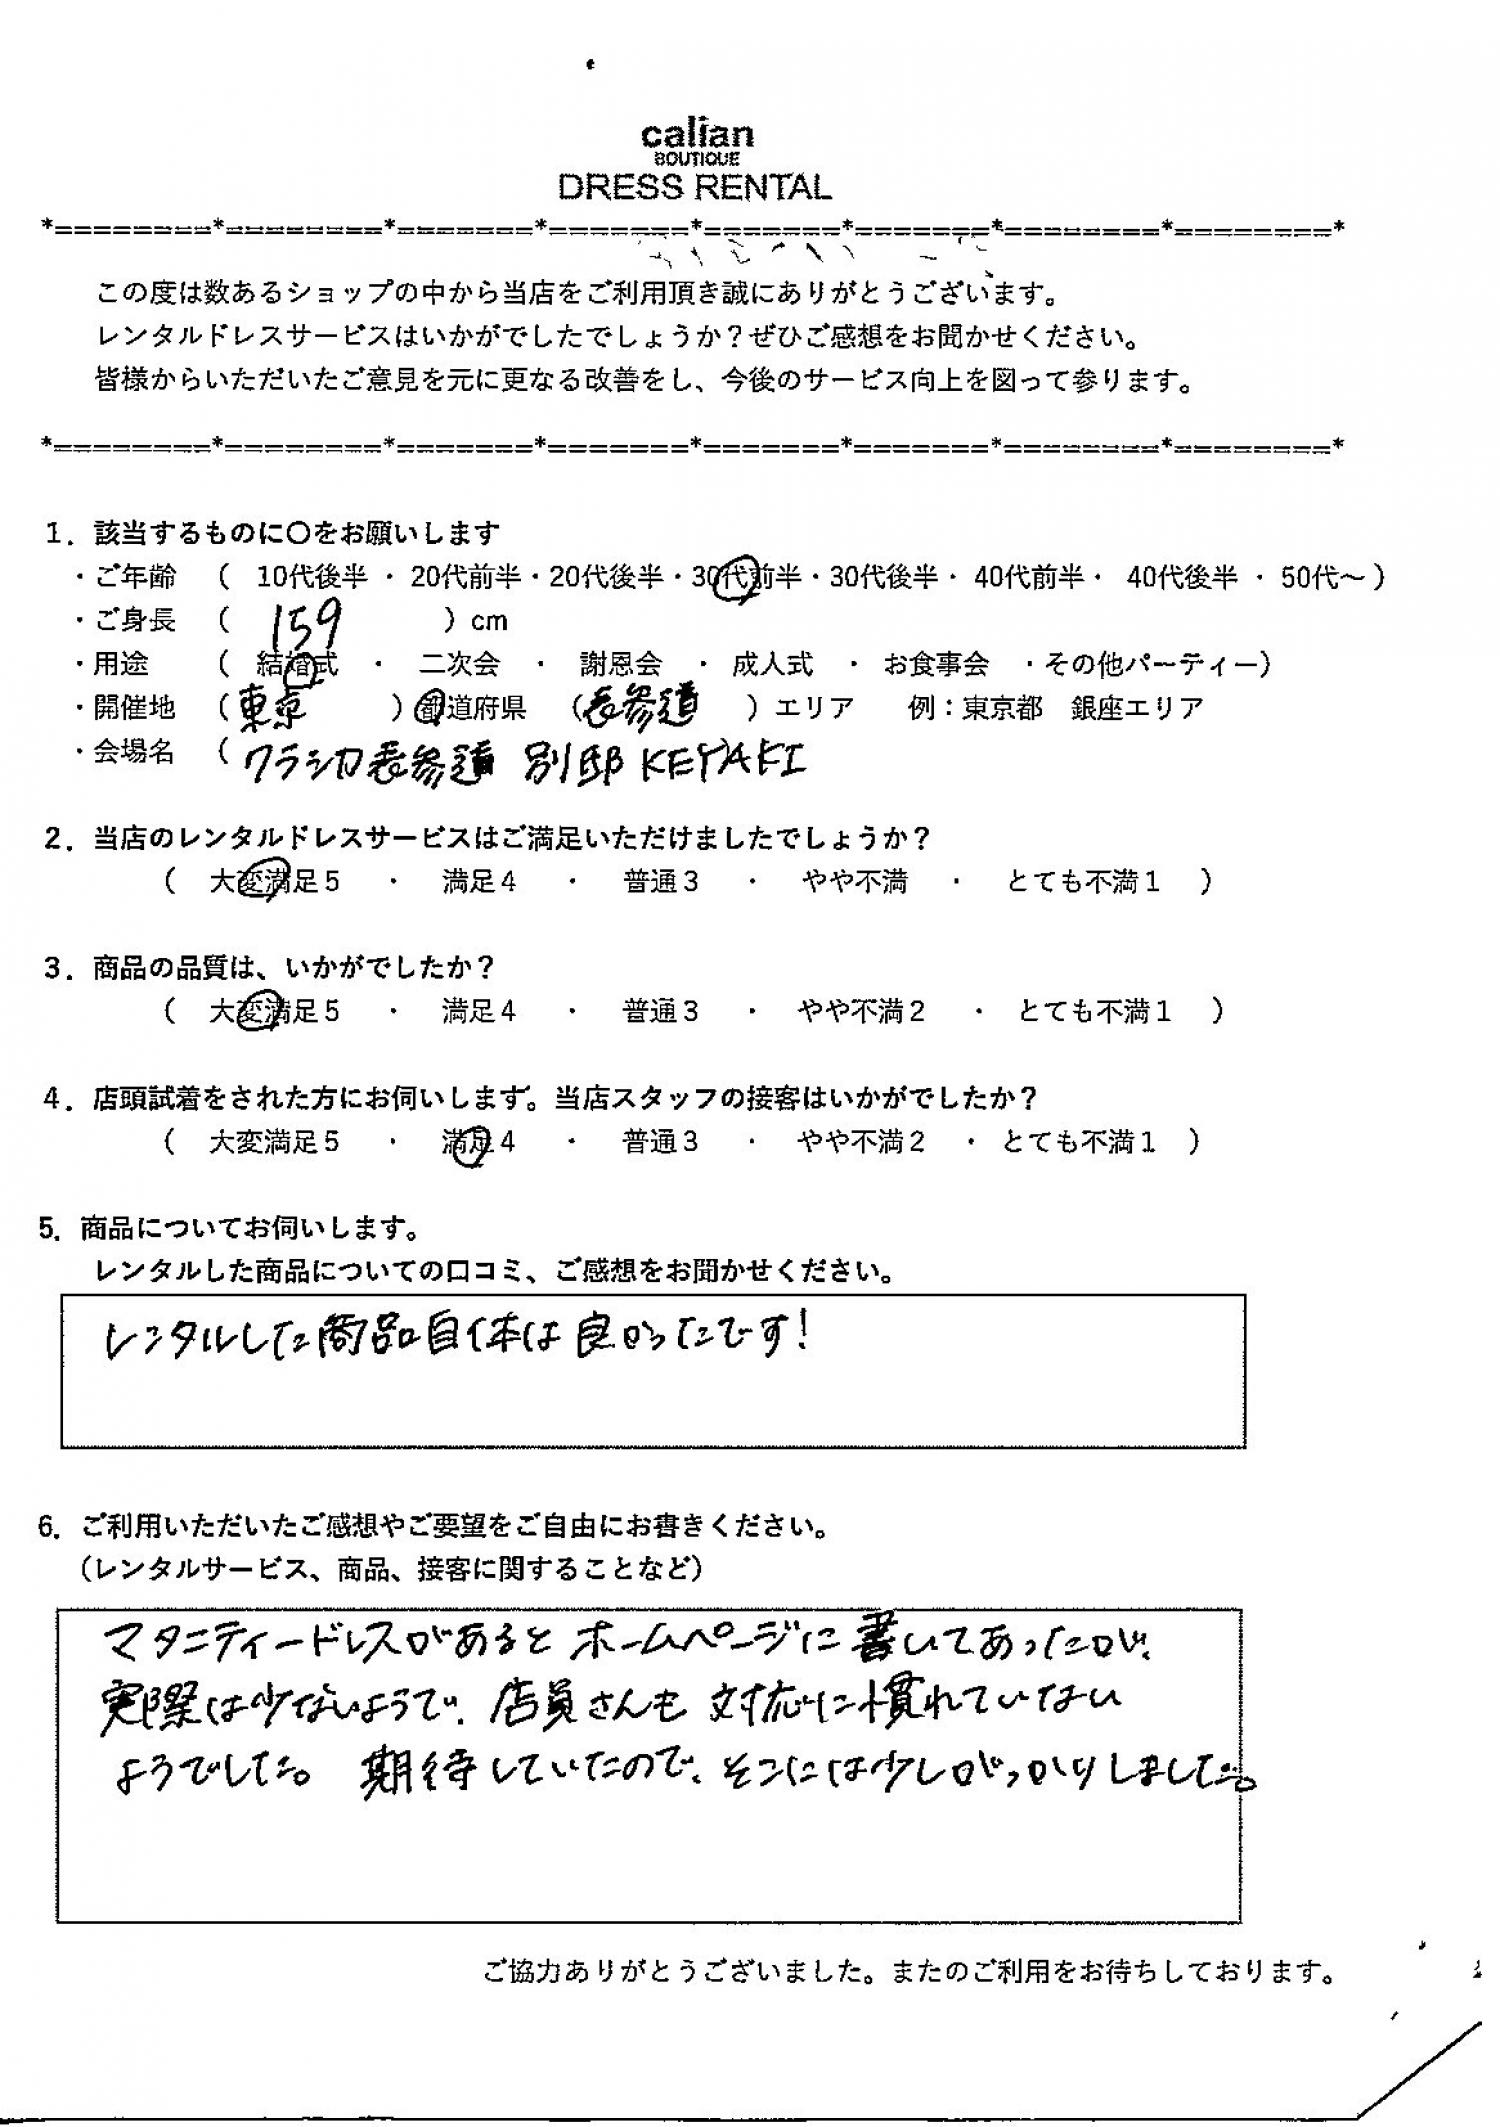 calian
BOUTIQUE
DRESS RENTAL
*========*========*=======*=======*=======*=======*========*========*
この度は数あるショップの中から当店をご利用頂き誠にありがとうございます。
レンタルドレスサービスはいかがでしたでしょうか？ぜひご感想をお聞かせください。
皆様からいただいたご意見を元に更なる改善をし、今後のサービス向上を図って参ります。
*========*========*=======*=======*=======*=======*========*========*
1．該当するものに〇をお願いします
・ご年齢 （ 10代後半 ・ 20代前半・20代後半・30代前半・30代後半・ 40代前半・ 40代後半 ・ 50代～）
・ご身長 （ 159 ）cm
・用途 （ 結婚式 ・ 二次会 ・ 謝恩会 ・ 成人式 ・ お食事会 ・その他パーティー）
・開催地 （東京 ）都道府県 （表参道 ）エリア 例：東京都 銀座エリア
・会場名 （クラシカ表参道 別邸 KEYAKI
2．当店のレンタルドレスサービスはご満足いただけましたでしょうか？
（ 大変満足5 ・ 満足4 ・ 普通3 ・ やや不満 ・ とても不満1 ）
3．商品の品質は、いかがでしたか？
（ 大変満足5 ・ 満足4 ・ 普通3 ・ やや不満2 ・ とても不満1 ）
4．店頭試着をされた方にお伺いします。当店スタッフの接客はいかがでしたか？
（ 大変満足5 ・ 満足4 ・ 普通3 ・ やや不満2 ・ とても不満1 ）
5．商品についてお伺いします。
レンタルした商品についての口コミ、ご感想をお聞かせください。
レンタルした商品自体は良かったです！
6．ご利用いただいたご感想やご要望をご自由にお書きください。
（レンタルサービス、商品、接客に関することなど）
マタニティードレスがあるとホームページに書いてあったが、
実際は少ないようで、店員さんも対応に慣れていない
ようでした。期待していたので、そこには少しがっかりしました。
ご協力ありがとうございました。またのご利用をお待ちしております。